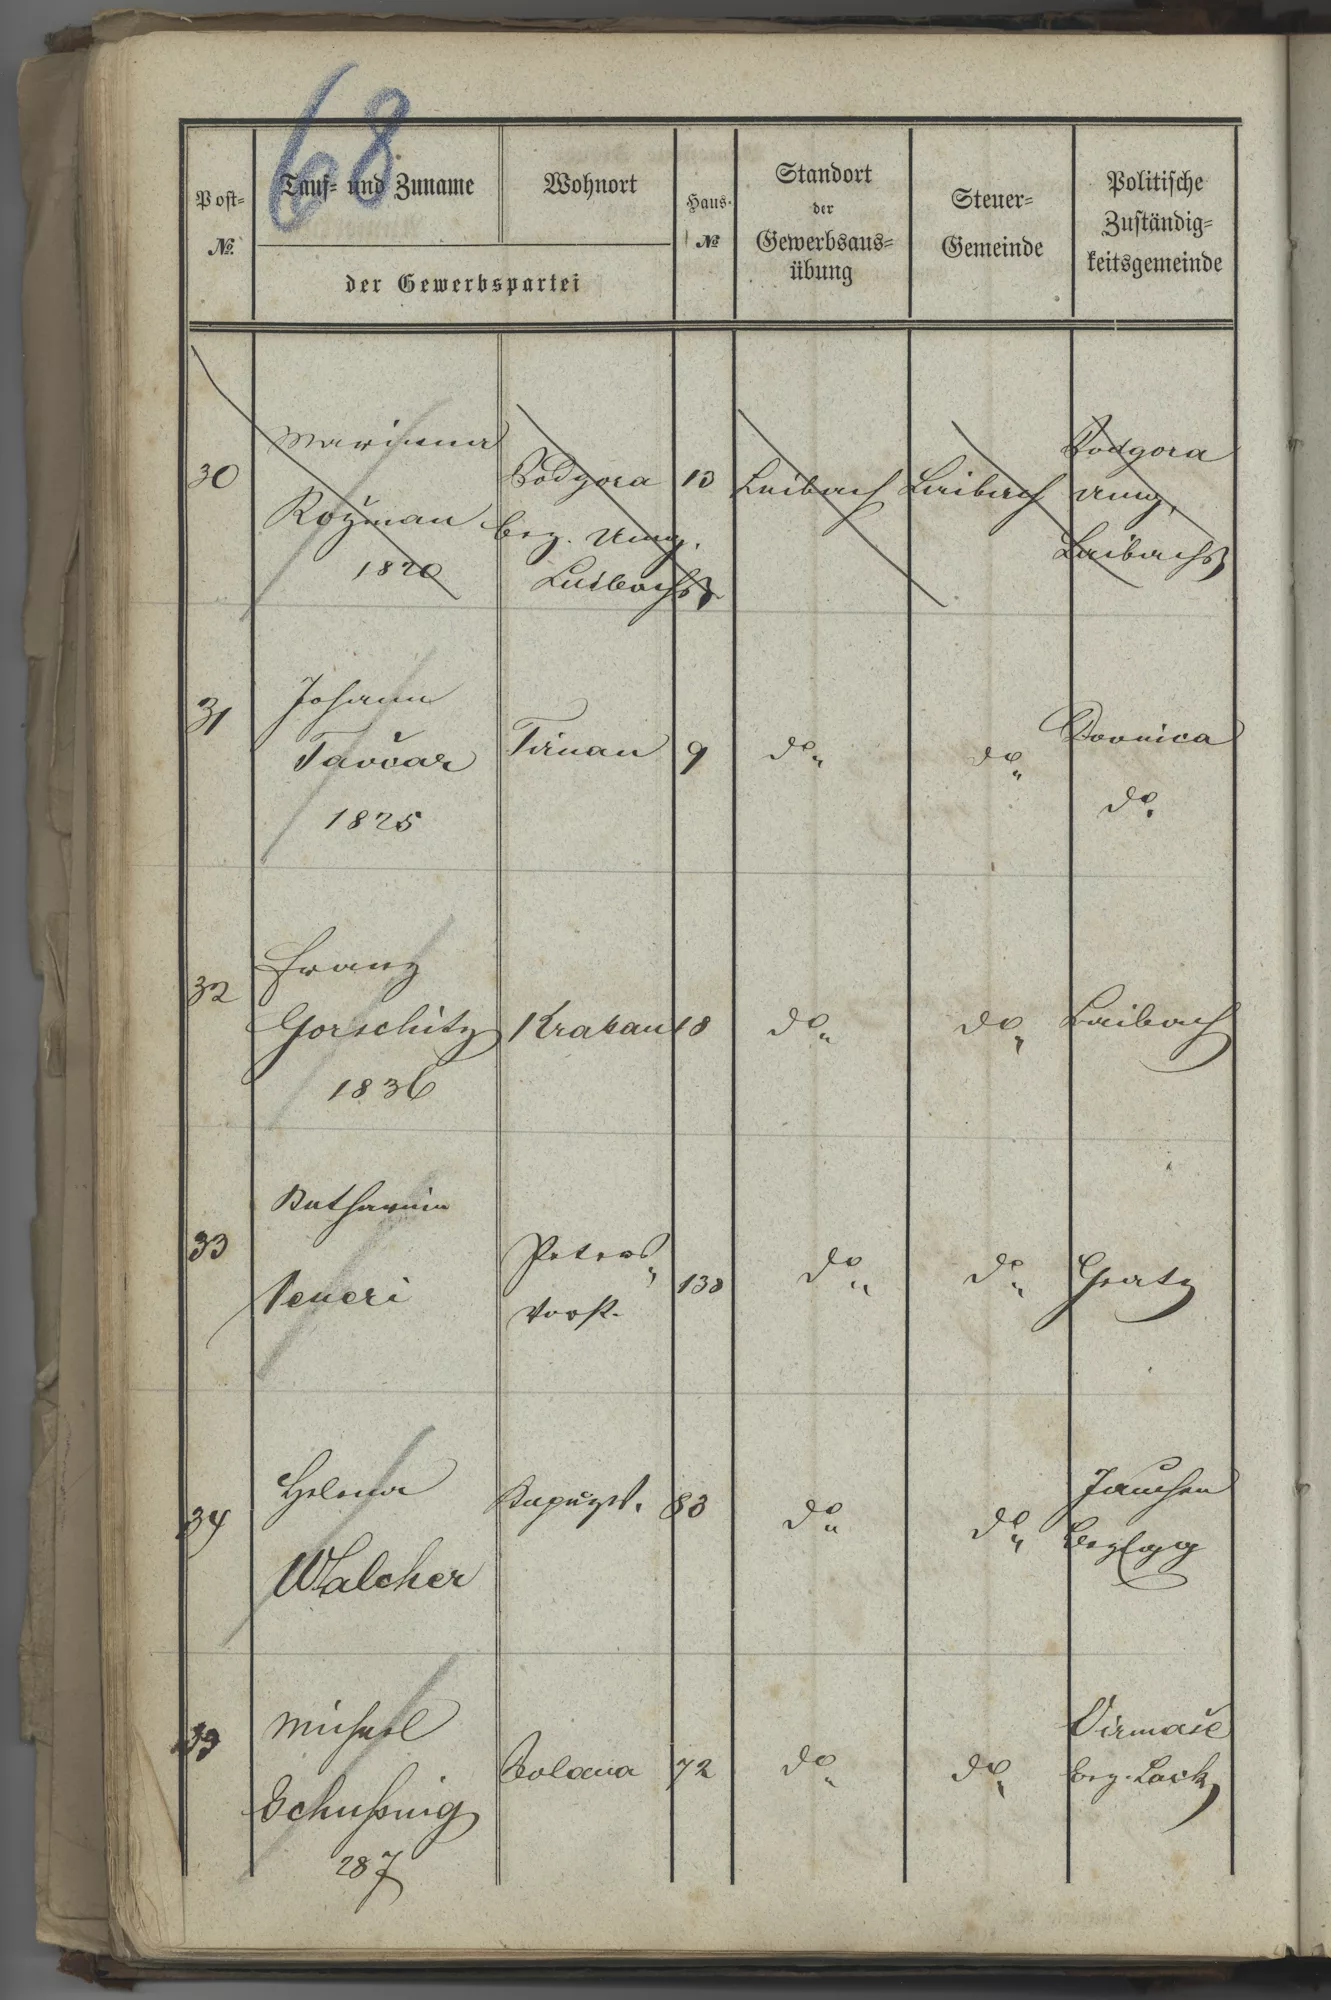 68
Post-
№.
Tauf- und Zuname
Wohnort
der Gewerbspartei
Haus-
№
Standort
der
Gewerbsaus-
übung
Steuer-
Gemeinde
Politische
Zuständig-
keitsgemeinde
30
Marianna
Rožman
1820
Podgora
bez. Umg.
Laibachs
13
Laibach
Laibach
Podgora
Umg.
Laibachs
31
Johann
Tavčar
1825
Tirnau
9
do„
do„
do.
32
Franz
Gorschitz
1836
Krakau
18
do„
do„
Laibach
33
Katharina
Veneri
Peters„
Vorst.
138
do„
do„
Gratz
34
Helena
Walcher
Kapuzvst.
83
do„
do„
Jauchen
Bez Egg
35
Michael
Schußnig
287
Polana
72
do„
do„
Virmaše
bez. Lack